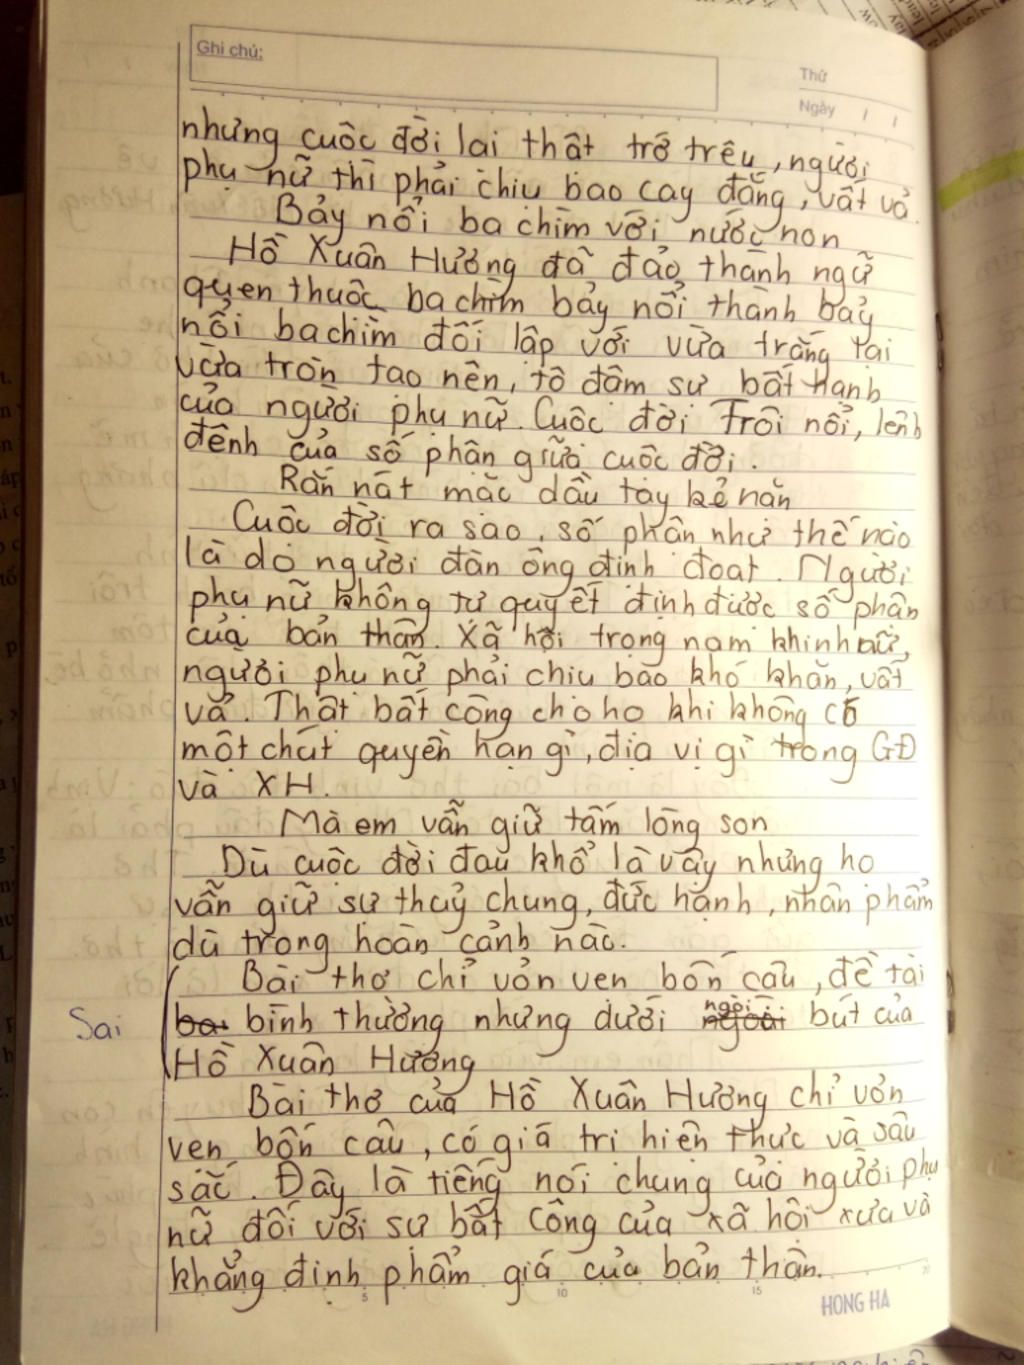 Ghi chú:
Thứ
Ngày / /
nhưng cuộc đời lại thật trớ trêu, người
phụ nữ thì phải chịu bao cay đắng, vất vả.
Bảy nổi ba chìm với nước non
Hồ Xuân Hương đã đảo thành ngữ
quen thuộc ba chìm bảy nổi thành bảy
nổi ba chìm đối lập với vừa trắng lại
vừa tròn tạo nên, tô đậm sự bất hạnh
của người phụ nữ. Cuộc đời Trôi nổi, lênh
đênh của số phận giữa cuộc đời.
Rắn nát mặc dầu tay kẻ nặn
Cuộc đời ra sao, số phận như thế nào
là do người đàn ông định đoạt. Người
phụ nữ không tự quyết định được số phận
của bản thân. Xã hội trọng nam khinh nữ,
người phụ nữ phải chịu bao khó khăn, vất
vả. Thật bất công cho họ khi không có
một chút quyền hạn gì, địa vị gì trong GĐ
và XH.
Mà em vẫn giữ tấm lòng son
Dù cuộc đời đau khổ là vậy nhưng họ
vẫn giữ sự thuỷ chung, đức hạnh, nhân phẩm
dù trong hoàn cảnh nào.
Bài thơ chỉ vỏn vẹn bốn câu, đề tài
Sai bình thường nhưng dưới ngòi bút của
Hồ Xuân Hương
Bài thơ của Hồ Xuân Hương chỉ vỏn
vẹn bốn câu, có giá trị hiện thực và sâu
sắc. Đây là tiếng nói chung của người phụ
nữ đối với sự bất công của xã hội xưa và
khẳng định phẩm giá của bản thân.
5 10 15
HONG HA